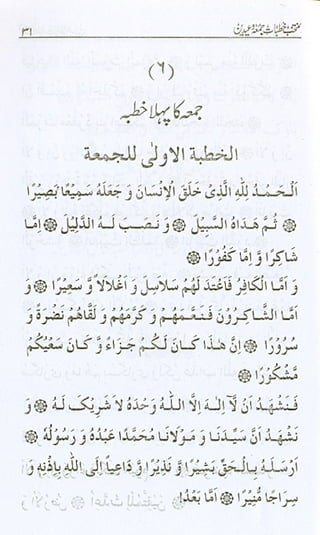 منتخب خطبات جمعہ و عیدین ۳۱
(۶)
جمعہ کا پہلا خطبہ
الخطبة الاولٰی للجمعة
اَلْحَمْدُ لِلّٰهِ الَّذِیْ خَلَقَ الْاِنْسَانَ وَ جَعَلَهٗ سَمِیْعًا بَصِیْرًا
۞ ثُمَّ هَدَاهُ السَّبِیْلَ ۞ وَ نَصَبَ لَهُ الدَّلِیْلَ ۞ اِمَّا
شَاکِرًا وَّ اِمَّا کَفُوْرًا ۞
وَ اَمَّا الْکَافِرُ فَاَعْتَدَ لَهُمْ سَلَاسِلَ وَ اَغْلَالًا وَّ سَعِیْرًا ۞ وَ
اَمَّا الشَّاکِرُوْنَ فَنَعَّمَهُمْ وَ کَرَّمَهُمْ وَ لَقَّاهُمْ نَضْرَةً وَّ
سُرُوْرًا ۞ اِنَّ هٰذَا کَانَ لَکُمْ جَزَاءً وَّ کَانَ سَعْیُکُمْ
مَّشْکُوْرًا ۞
فَنَشْهَدُ اَنْ لَّآ اِلٰهَ اِلَّا اللّٰهُ وَحْدَهٗ لَا شَرِیْكَ لَهٗ ۞ وَ
نَشْهَدُ اَنَّ سَیِّدَنَا وَ مَوْلَانَا مُحَمَّدًا عَبْدُهٗ وَ رَسُوْلُهٗ ۞
اَرْسَلَهٗ بِالْحَقِّ بَشِیْرًا وَّ نَذِیْرًا ۞ وَّ دَاعِیًا اِلَی اللّٰهِ بِاِذْنِهٖ وَ
سِرَاجًا مُّنِیْرًا ۞ اَمَّا بَعْدُ!